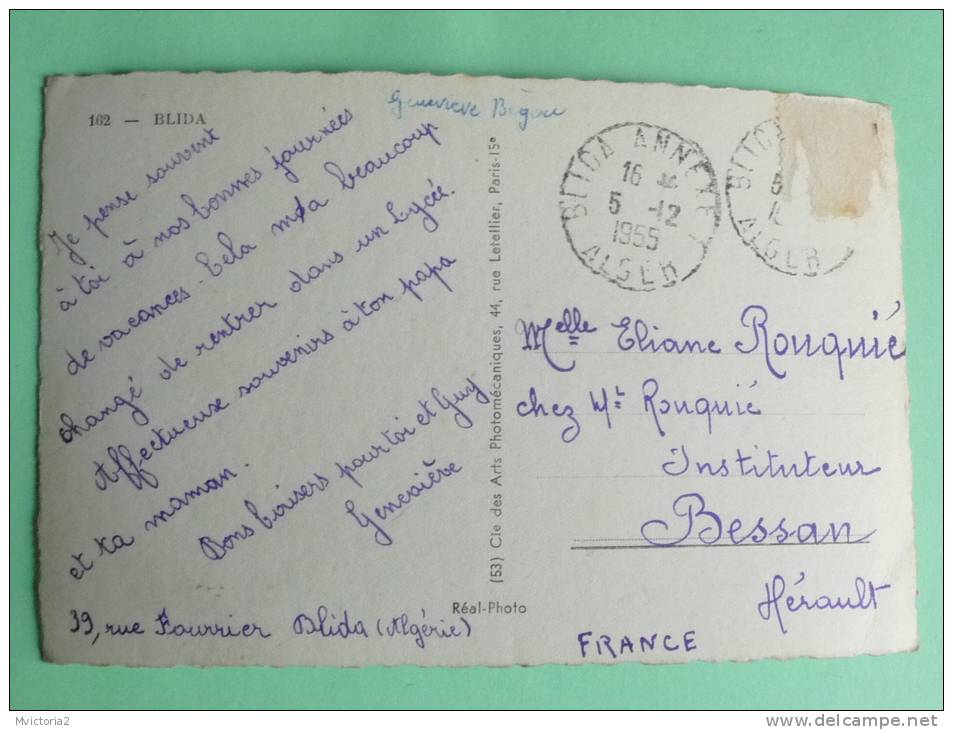 162 — BLIDA
Geneviève
Je pense souvent
à toi à nos bonnes journées
de vacances. Cela m'a beaucoup
changé de rentrer dans un Lycée.
Affectueux souvenirs à ton papa
et ta maman.
Bons baisers pour toi et Guy
Geneviève
39, rue Fourrier Blida (Algérie)
Réal-Photo
(53) Cie des Arts Photomécaniques, 44, rue Letellier, Paris-15e
BLIDA ANNEXE
16
5 -12
1955
ALGER
ALGER
Melle Eliane Rouquié
chez Mr Rouquié
Instituteur
Bessan
Hérault
FRANCE
Mvictoria2
delcampe.net